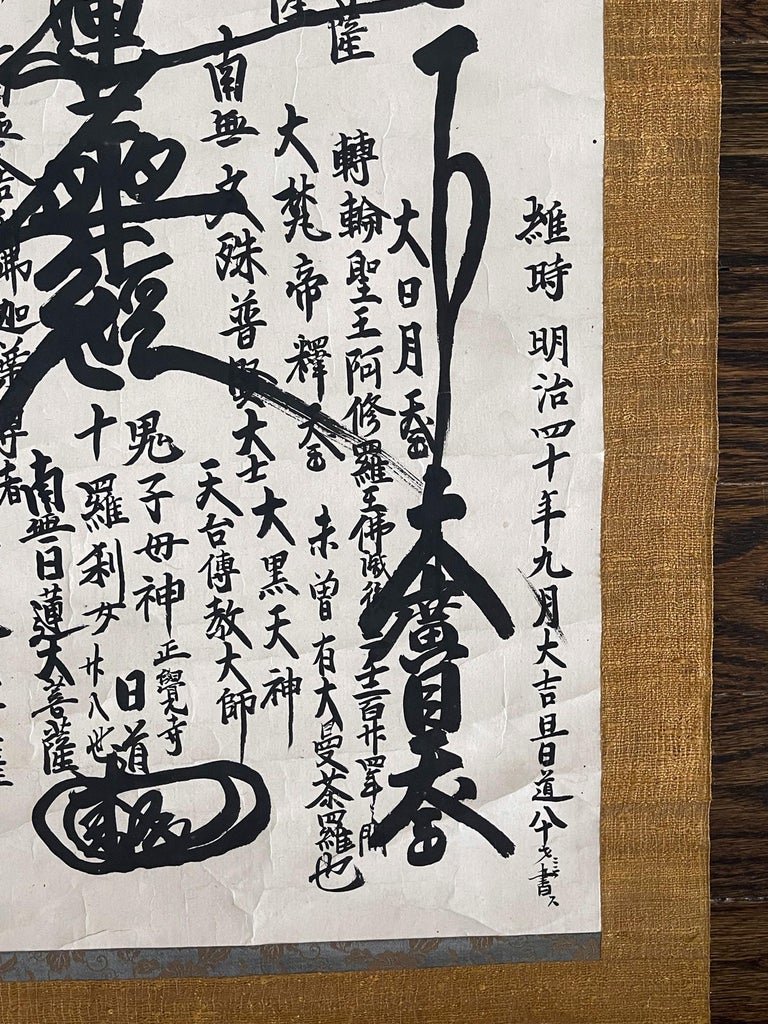 維時明治四十年九月大吉旦日道八十才書ス
大廣目天王
大日月天王
轉輪聖王阿修羅王佛滅後二千二百廿四年之間
大梵帝釋天王
未曽有大曼荼羅也
菩薩
大黒天神
南無文殊普賢大士
天台傳教大師
鬼子母神
正覺寺
十羅刹女廿八世
日道
蓮華經
南無日蓮大菩薩
尊者